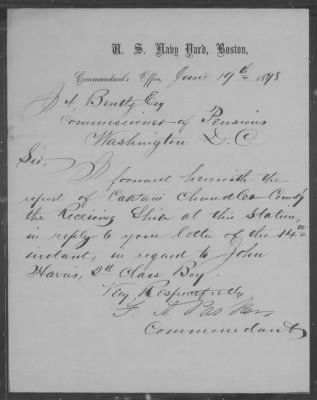 U. S. Navy Yard, Boston,
Commandant's Office, June 19th 1878
J A. Bently Esq
Commissioner of Pensions
Washington D. C
Sir,
I forward herewith the
report of Captain Chandler Comd'g
the Receiving Ship at this Station,
in reply to your letter of the 14th
instant, in regard to John
Harris, 2d Class Boy.
Very Respectfully
F. A. Parker
Commandant